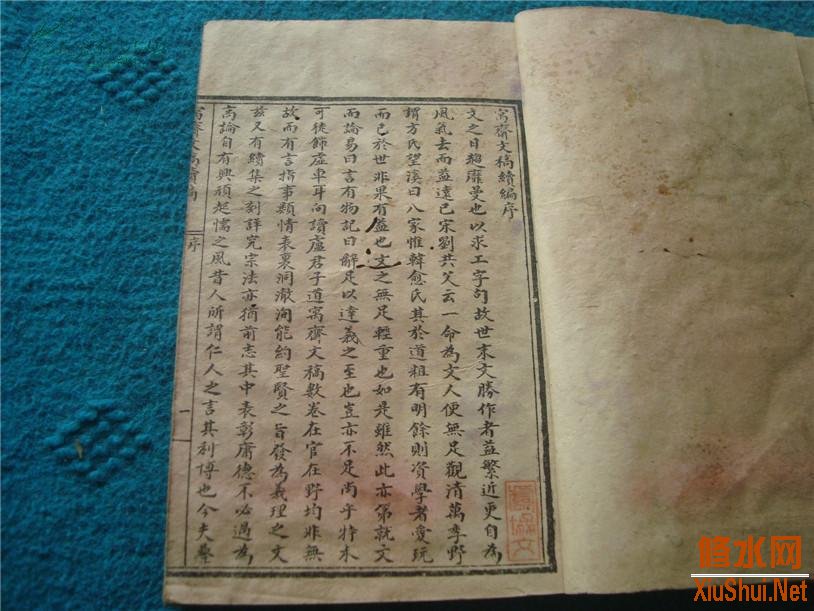 寓齋文稿續編序
文之日趨靡曼也以求工字句故世末文勝作者益繁近更自為
風氣去而益遠已宋劉共父云一命為文人便無足觀清萬季野
謂方氏望溪曰八家惟韓愈氏其於道粗有明餘則資學者愛玩
而已於世非果有益也文之無足輕重也如是雖然此亦第就文
而論易曰言有物記曰辭足以達義之至也豈亦不足尚乎特未
可徒飾虛車耳向讀盧君子道寓齋文稿數卷在官在野均非無
故而有言指事類情表裏洞澈洵能約聖賢之旨發為義理之文
茲又有續集之刻詳究宗法亦猶前志其中表彰庸德不必過為
高論自有興頑起懦之風昔人所謂仁人之言其利博也今夫
寓齋文稿續編
序
一
修水网
XiuShui.Net